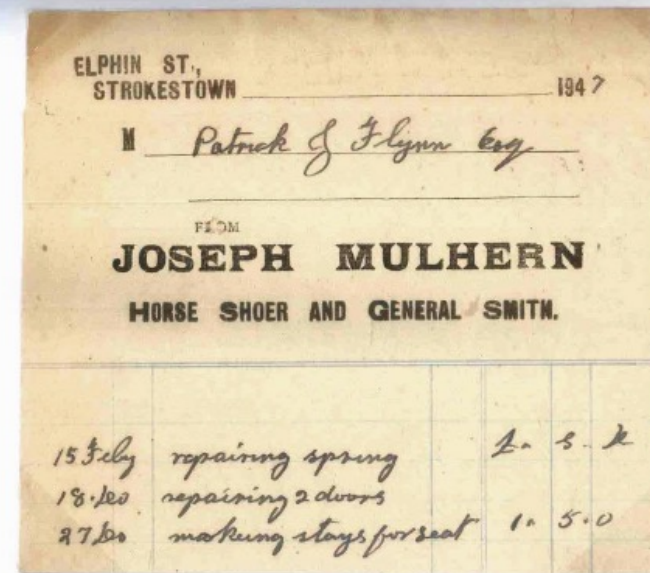 ELPHIN ST.,
STROKESTOWN 1947
M Patrick J Flynn Esq
FROM
JOSEPH MULHERN
HORSE SHOER AND GENERAL SMITH.
£. s. d
15 Feby repairing spring
18. Do repairing 2 doors
27 Do making stays for seat 1. 5. 0